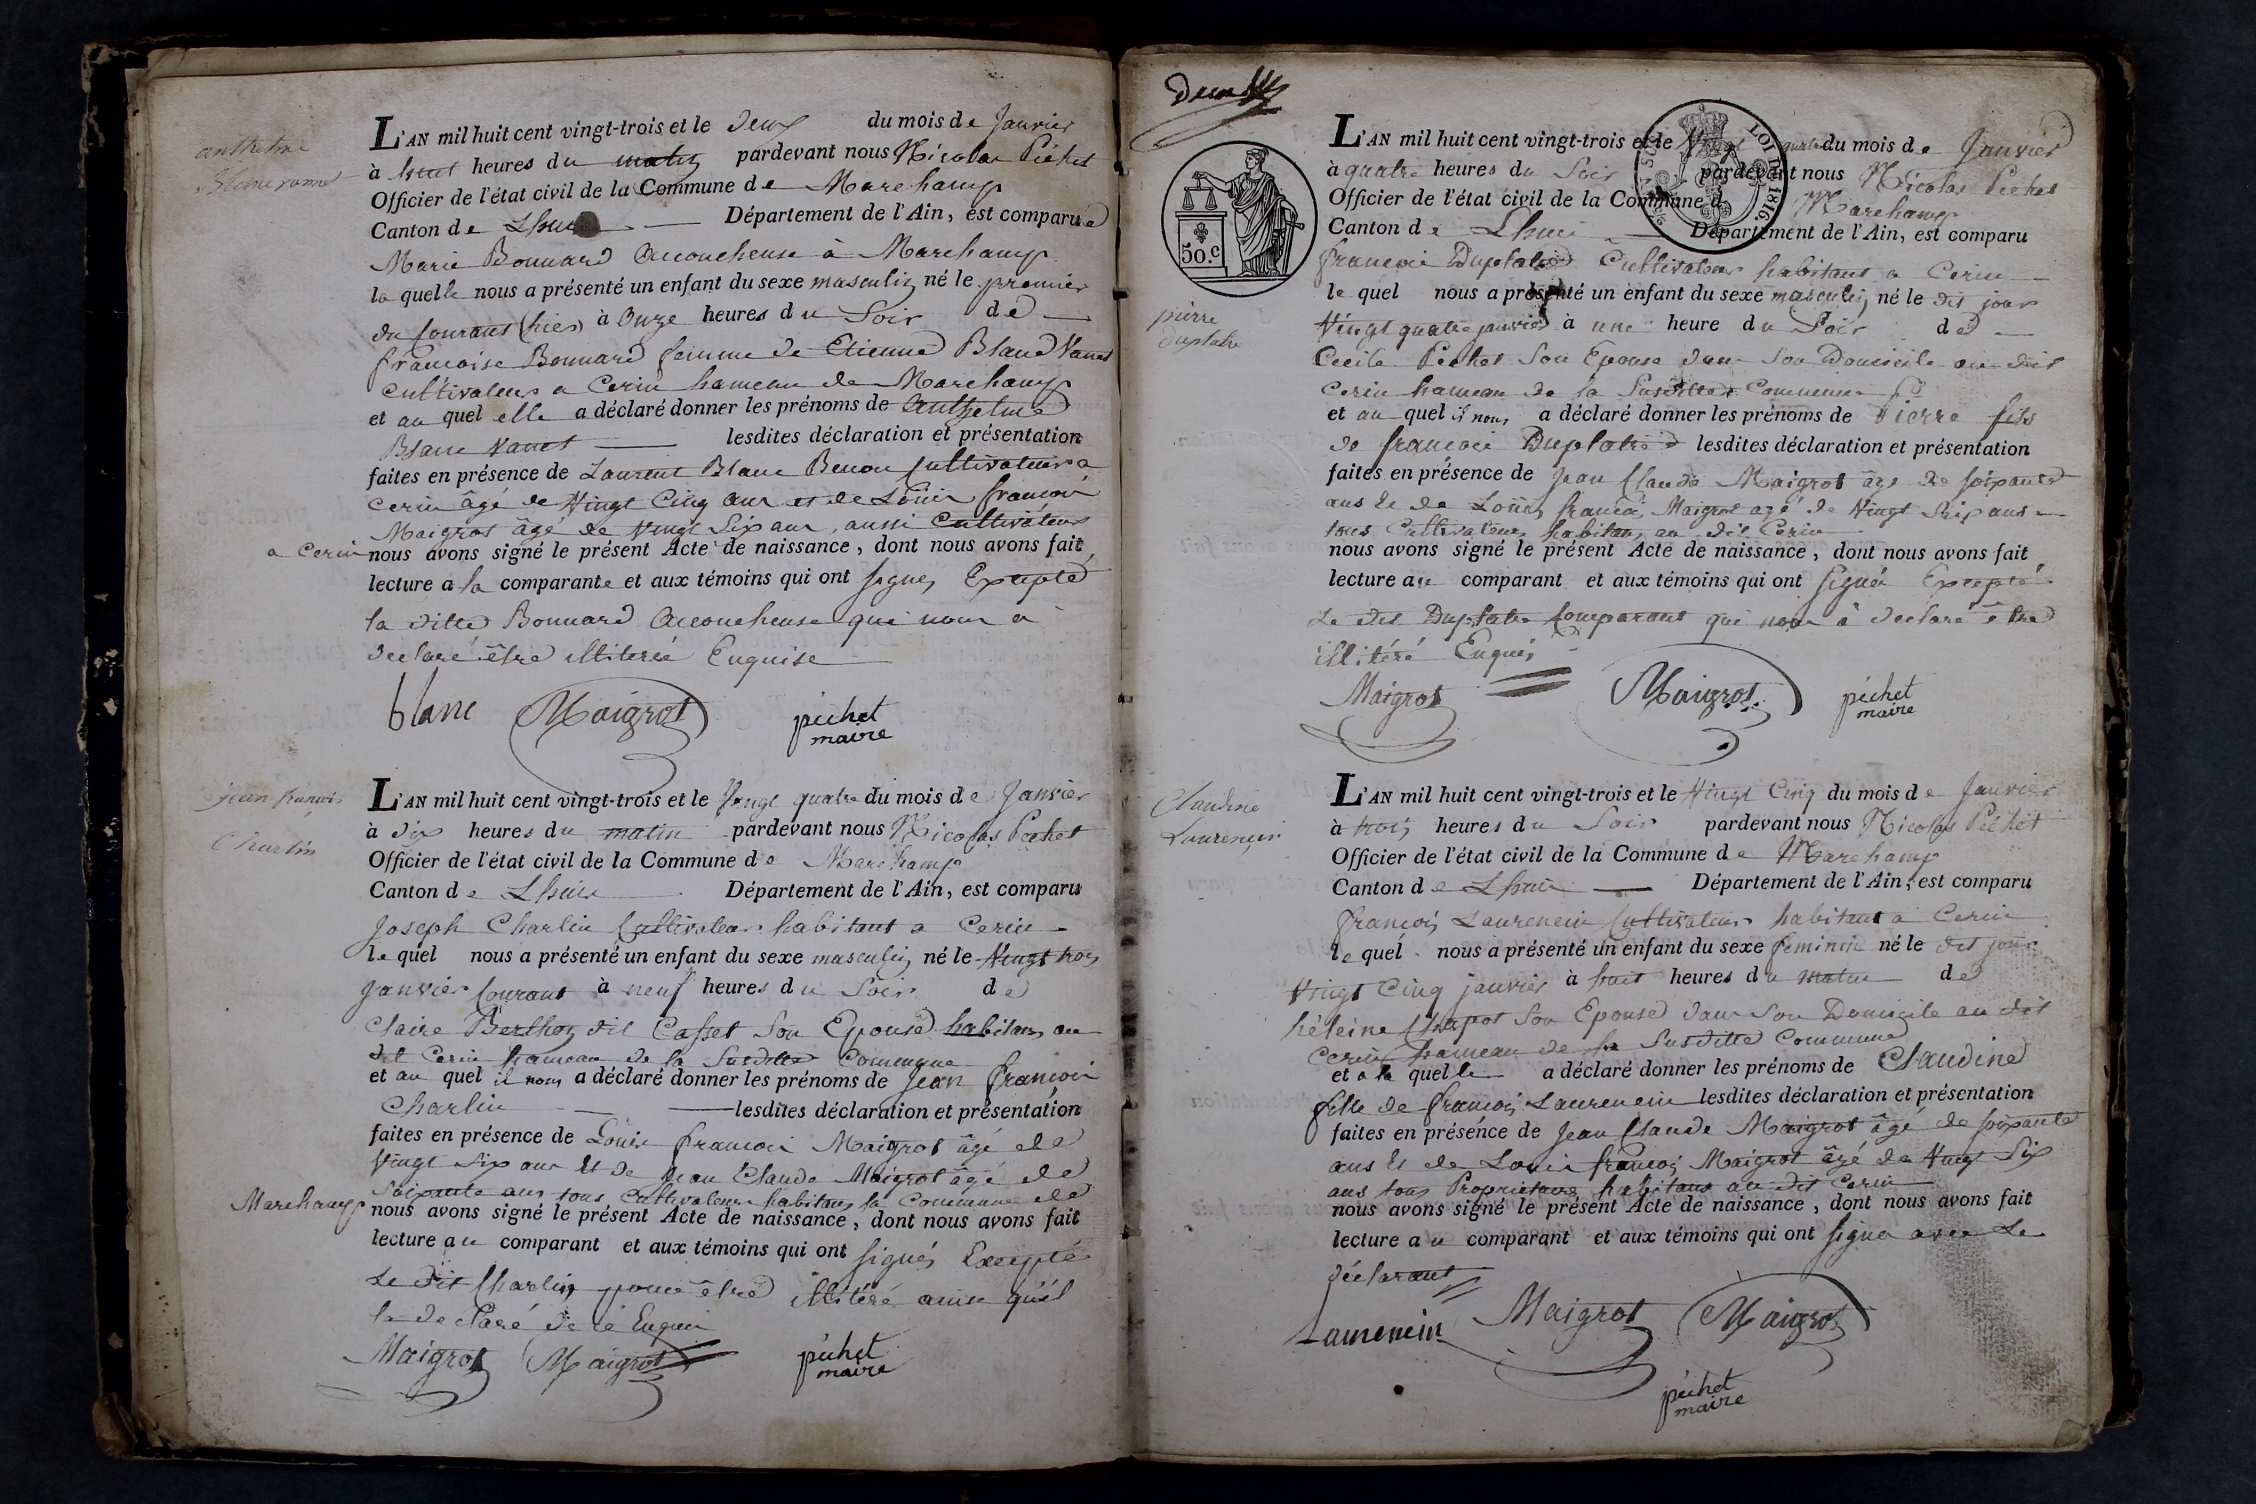 anthelme
Blanc vanet
L'AN mil huit cent vingt-trois et le deux du mois de Janvier
à huit heures du matin pardevant nous Nicolas Péchet
Officier de l'état civil de la Commune de Marchamp
Canton de Lhuis Département de l'Ain, est comparue
Marie Bonnard accoucheuse à Marchamp
la quelle nous a présenté un enfant du sexe masculin né le premier
du courant (hier) à Onze heures du Soir de
françoise Bonnard femme de Etienne Blanc Vanet
cultivateur a Cerin hameau de Marchamp
et au quel elle a déclaré donner les prénoms de Anthelme
Blanc Vanet lesdites déclaration et présentation
faites en présence de Laurent Blanc Benon Cultivateur a
Cerin âgé de Vingt Cinq ans et de Louis françois
Maigrot âgé de Vingt Six ans, aussi Cultivateur
a Cerin nous avons signé le présent Acte de naissance, dont nous avons fait
lecture a la comparante et aux témoins qui ont signés Excepté
la ditte Bonnard accoucheuse qui nous a
declaré être illiterée Enquise
blanc Maigrot péchet
maire
jean françois
Charlin
L'AN mil huit cent vingt-trois et le Vingt quatre du mois de Janvier
à dix heures du matin pardevant nous Nicolas Pechet
Officier de l'état civil de la Commune de Marchamp
Canton de Lhuis Département de l'Ain, est comparu
Joseph Charlin Cultivateur habitant a Cerin
le quel nous a présenté un enfant du sexe masculin né le Vingt trois
Janvier Courant à neuf heures du Soir de
Claire Berthoz dit Casset Son Epouse habitans au
dit Cerin hameau de la Susditte Commune
et au quel il nous a déclaré donner les prénoms de Jean françois
Charlin lesdites déclaration et présentation
faites en présence de Louis françois Maigrot âgé de
Vingt Six ans et de Jean Claude Maigrot âgé de
Soixante ans tous Cultivateurs habitans la Commune de
Marchamp nous avons signé le présent Acte de naissance, dont nous avons fait
lecture au comparant et aux témoins qui ont signés Excepté
Le dit Charlin pour être illitéré ainsi qu'il
la declaré de ce Enquis
Maigrot Maigrot péchet
maire
50.c
LOI DE 1816.
pierre
duplatre
L'AN mil huit cent vingt-trois et le Vingt quatre du mois de Janvier
à quatre heures du Soir pardevant nous Nicolas Péchet
Officier de l'état civil de la Commune de Marchamp
Canton de Lhuis Département de l'Ain, est comparu
françois Duplatre Cultivateur habitant a Cerin
le quel nous a présenté un enfant du sexe masculin né le dit jour
Vingt quatre janvier à une heure du Soir de
Cecile Pechet Son Epouse dans Son Domicile au dit
Cerin hameau de la Susditte Commune
et au quel il nous a déclaré donner les prénoms de Pierre fils
de françois Duplatre lesdites déclaration et présentation
faites en présence de Jean Claude Maigrot âgé de Soixante
ans et de Louis françois Maigrot agé de Vingt Six ans
tous Cultivateurs habitans au dit Cerin
nous avons signé le présent Acte de naissance, dont nous avons fait
lecture au comparant et aux témoins qui ont signé Excepté
Le dit Duplatre Comparant qui nous à declaré être
illitéré Enquis
Maigrot Maigrot péchet
maire
Claudine
Laurencin
L'AN mil huit cent vingt-trois et le Vingt Cinq du mois de Janvier
à trois heures du Soir pardevant nous Nicolas Péchet
Officier de l'état civil de la Commune de Marchamp
Canton de Lhuis Département de l'Ain, est comparu
françois Laurencin Cultivateur habitant a Cerin
le quel nous a présenté un enfant du sexe feminin né le dit jour
Vingt Cinq janvier à huit heures du matin de
héleine Chapot Son Epouse dans Son Domicile au dit
Cerin hameau de la Susditte Commune
et a la quelle a déclaré donner les prénoms de Claudine
fille de françois Laurencin lesdites déclaration et présentation
faites en présence de Jean Claude Maigrot âgé de Soixante
ans et de Louis françois Maigrot âgé de Vingt Six
ans tous Proprietaires habitans au dit Cerin
nous avons signé le présent Acte de naissance, dont nous avons fait
lecture au comparant et aux témoins qui ont signé avec Le
déclarant
Laurencin Maigrot Maigrot
péchet
maire